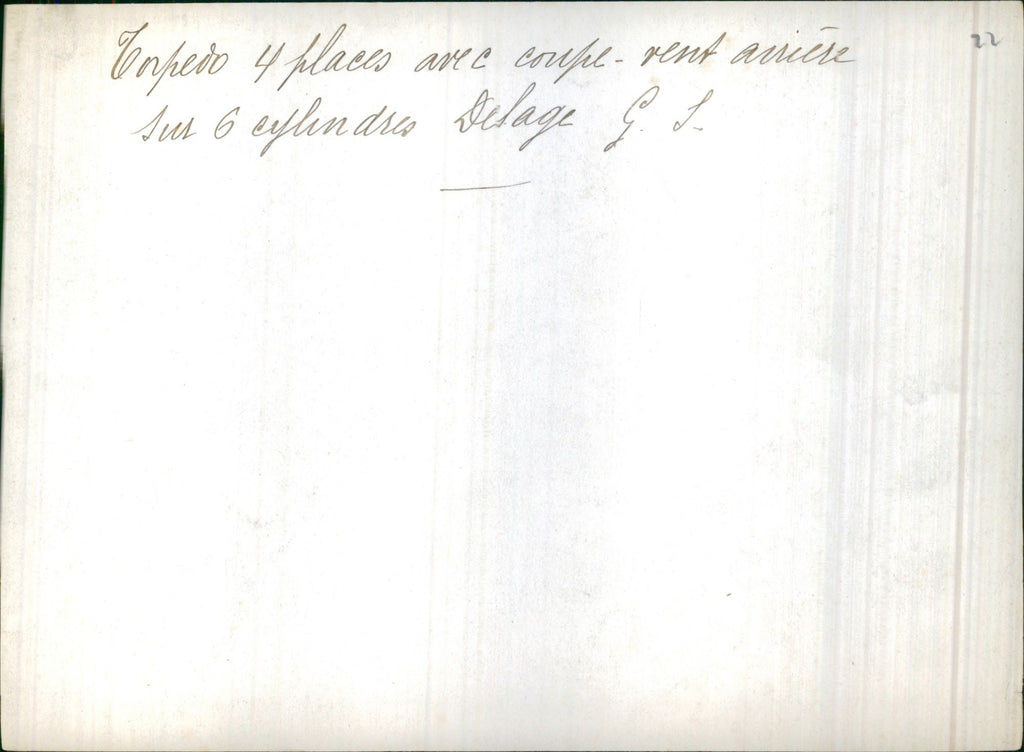 22
Torpedo 4 places avec coupe-vent arrière
sur 6 cylindres Delage G. S.